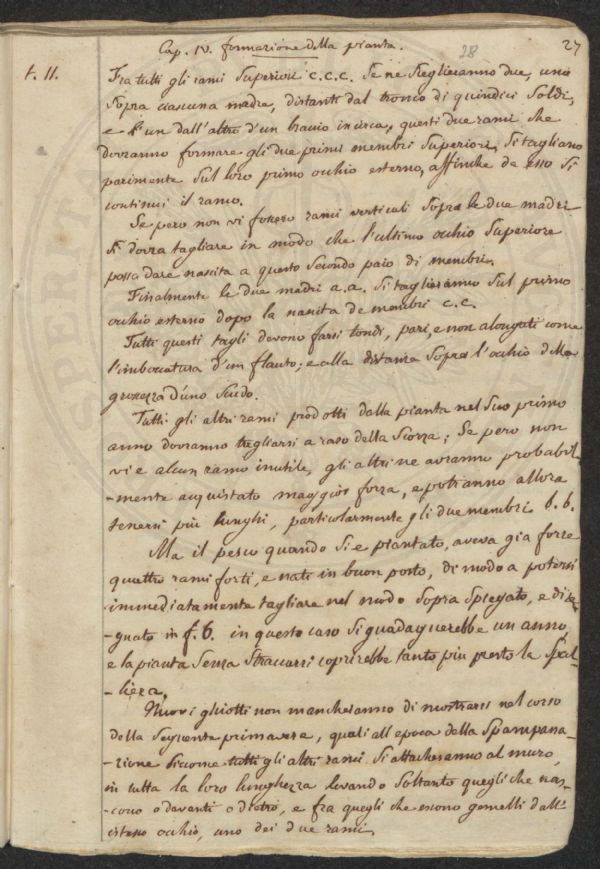 Cap. IV. formazione della pianta.
28
27
f. 11.
Fra tutti gli rami Superiori c.c.c. Se ne Sceglieranno due, uno
Sopra ciascuna madre, distanti dal tronco di quindici Soldi,
e l'un dall'altro d'un braccio in circa, questi due rami che
dovranno formare gli due primi membri Superiori, Si tagliano
parimente Sul loro primo occhio esterno, affinche da esso Si
continui il ramo.
Se pero non vi fossero rami verticali Sopra le due madri
Si dovra tagliare in modo che l'ultimo occhio Superiore
possa dare nascita a questo Secondo paio di membri.
Finalmente le due madri a.a. Si taglieranno Sul primo
occhio esterno dopo la nascita de membri c.c.
Tutti questi tagli devono farsi tondi, pari, e non alongati come
l'imboccatura d'un flauto; e alla distanza Sopra l'occhio della
grossezza d'uno Scudo.
Tutti gli altri rami prodotti dalla pianta nel Suo primo
anno dovranno tagliarsi a raso della Scorza; Se pero non
vi e alcun ramo inutile, gli altri ne avranno probabil-
-mente acquistato maggior forza, e potranno allora
tenersi più lunghi, particolarmente gli due membri b.b.
Ma il pesco quando Si e piantato, aveva gia forse
quattro rami forti, e nati in buon posto, di modo a potersi
immediatamente tagliare nel modo Sopra Spiegato, e dise-
-gnato in f. 6. in questo caso Si guadagnerebbe un anno,
e la pianta Senza Straccarsi coprirebbe tanto più presto la Spal-
-liera.
Nuovi ghiotti non mancheranno di mostrarsi nel corso
della Seguente primavera, quali all'epoca della Spampana-
-zione Siccome tutti gli altri rami Si attacheranno al muro,
in tutta la loro lunghezza levando Soltanto quegli che nas-
cono o davanti o dietro, e fra quegli che escono gemelli dall'
istesso occhio, uno dei due rami.